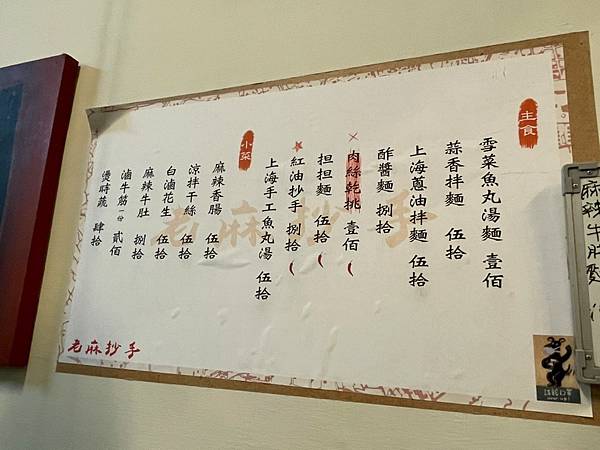 主食
雪菜魚丸湯麵 壹佰
蒜香拌麵 伍拾
上海蔥油拌麵 伍拾
酢醬麵 捌拾
肉絲乾挑 壹佰
担担麵 伍拾
紅油抄手 捌拾
上海手工魚丸湯 伍拾
小菜
麻辣香腸 伍拾
涼拌干絲 伍拾
白滷花生 伍拾
麻辣牛肚 捌拾
滷牛筋一份 貳佰
燙時蔬 肆拾
老麻抄手
老麻抄手
麻辣牛肚麵